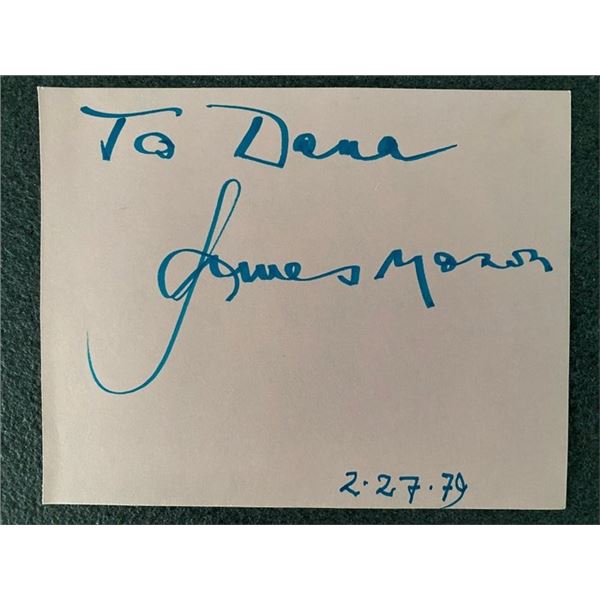 To Dana
James Mason
2.27.79